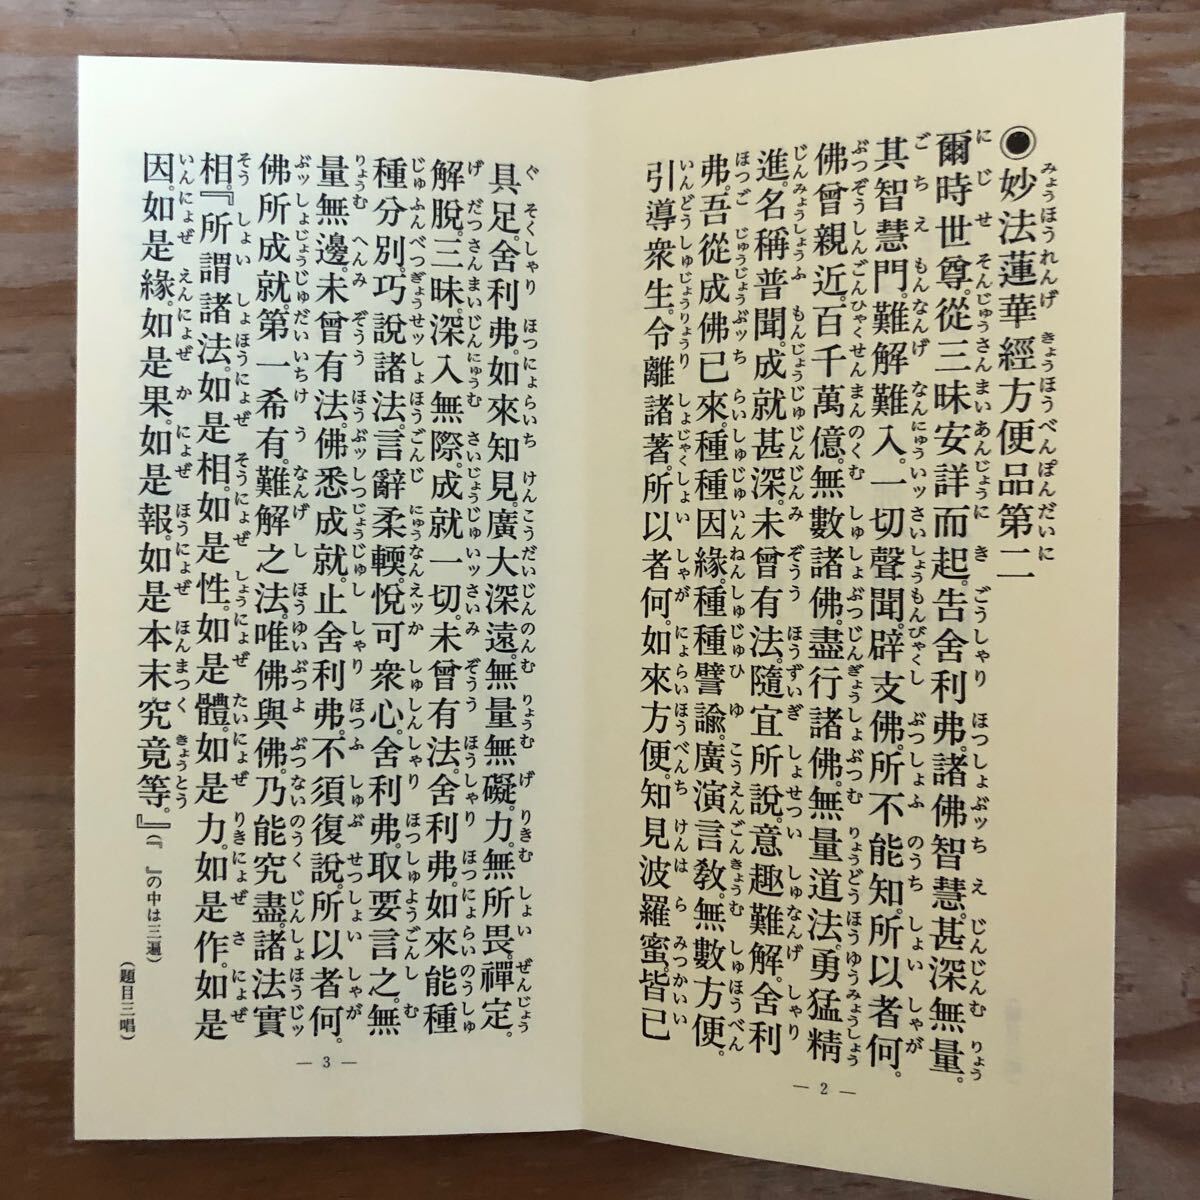 ◉妙法蓮華經方便品第二
爾時世尊。從三昧安詳而起。告舍利弗。諸佛智慧。甚深無量。
其智慧門。難解難入。一切聲聞。辟支佛。所不能知。所以者何。
佛曾親近。百千萬億。無數諸佛。盡行諸佛。無量道法。勇猛精
進。名稱普聞。成就甚深。未曾有法。隨宜所說。意趣難解。舍利
弗。吾從成佛已來。種種因緣。種種譬諭。廣演言教。無數方便。
引導衆生。令離諸著。所以者何。如來方便。知見波羅蜜。皆已
— 2 —
具足。舍利弗。如來知見。廣大深遠。無量無礙。力。無所畏。禪定。
解脫。三昧。深入無際。成就一切。未曾有法。舍利弗。如來能種
種分別。巧說諸法。言辭柔輭。悅可衆心。舍利弗。取要言之。無
量無邊。未曾有法。佛悉成就。止舍利弗。不須復說。所以者何。
佛所成就。第一希有。難解之法。唯佛與佛。乃能究盡。諸法實
相。『所謂諸法。如是相。如是性。如是體。如是力。如是作。如是
因。如是緣。如是果。如是報。如是本末究竟等。』(『 』の中は三遍)
(題目三唱)
— 3 —